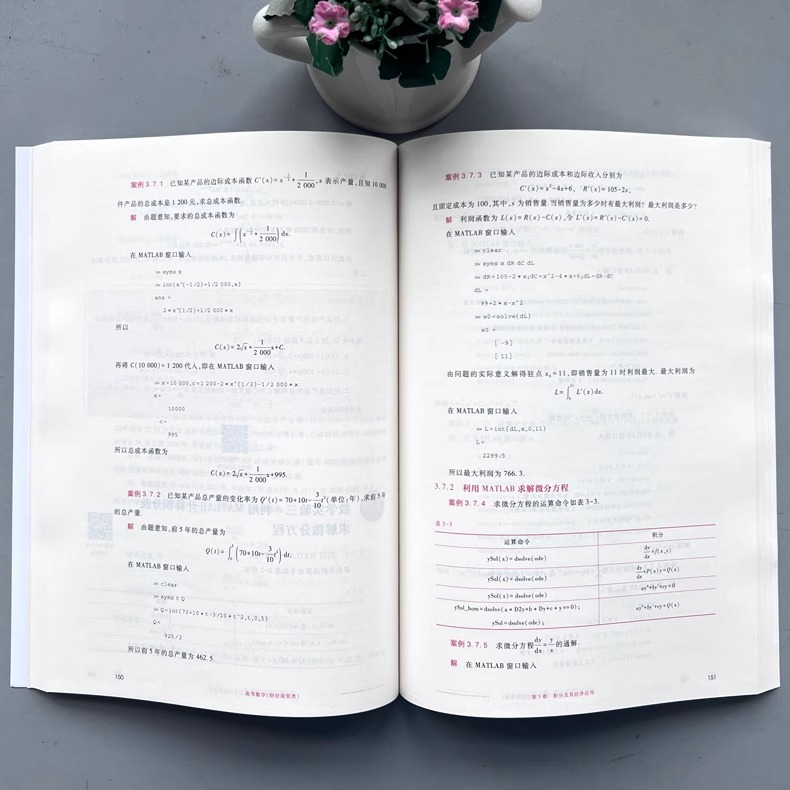 案例 3.7.1 已知某产品的边际成本函数 C′(x)=x^{-1/2}+1/2 000, x 表示产量,且知 10 000
件产品的总成本是 1 200 元,求总成本函数.
解 由题意知,要求的总成本函数为
C(x)=∫(x^{-1/2}+1/2 000)dx.
在 MATLAB 窗口输入
>> syms x
>> int(x^(-1/2)+1/2 000,x)
ans =
2*x^(1/2)+1/2 000*x
所以
C(x)=2√x+1/2 000x+C.
再将 C(10 000)=1 200 代入,即在 MATLAB 窗口输入
>> x=10 000,c=1 200-2*x^(1/2)-1/2 000*x
x=
10000
c=
995
所以总成本函数为
C(x)=2√x+1/2 000x+995.
案例 3.7.2 已知某产品总产量的变化率为 Q′(t)=70+10t-3/10t²(单位:年),求前 5 年
的总产量.
解 由题意知,前 5 年的总产量为
Q(t)=∫₀⁵(70+10t-3/10t²)dt.
在 MATLAB 窗口输入
>> clear
>> syms t Q
>> Q=int(70+10*t-3/10*t^2,t,0,5)
Q=
925/2
所以前 5 年的总产量为 462.5.
150
高等数学(财经商贸类)
案例 3.7.3 已知某产品的边际成本和边际收入分别为
C′(x)=x²-4x+6, R′(x)=105-2x,
且固定成本为 100,其中,x 为销售量.当销售量为多少时有最大利润? 最大利润是多少?
解 利润函数为 L(x)=R(x)-C(x),令 L′(x)=R′(x)-C′(x)=0.
在 MATLAB 窗口输入
>> clear
>> syms x dR dC dL
>> dR=105-2*x;dC=x^2-4*x+6;dL=dR-dC
dL =
99+2*x-x^2
>> x0=solve(dL)
x0 =
[ -9]
[ 11]
由问题的实际意义解得驻点 x₀=11,即销售量为 11 时利润最大. 最大利润为
L=∫₀¹¹L′(x)dx.
在 MATLAB 窗口输入
>> L=int(dL,x,0,11)
L=
2299/3
所以最大利润为 766.3.
3.7.2 利用 MATLAB 求解微分方程
案例 3.7.4 求微分方程的运算命令如表 3-3.
表 3-3
运算命令 积分
ySol(x)=dsolve(ode) dy/dx=f(x,y)
ySol(x)=dsolve(ode) dy/dx+P(x)y=Q(x)
ySol(x)=dsolve(ode) ay″+by′+cy=0
ySol_hom=dsolve(a*D2y+b*Dy+c*y==0);
ySol=dsolve(ode); ay″+by′+cy=Q(x)
案例 3.7.5 求微分方程 dy/dx=y/x 的通解.
解 在 MATLAB 窗口输入
151
第 3 章 积分及其经济应用